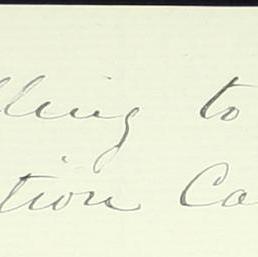 lling to
tion Ca